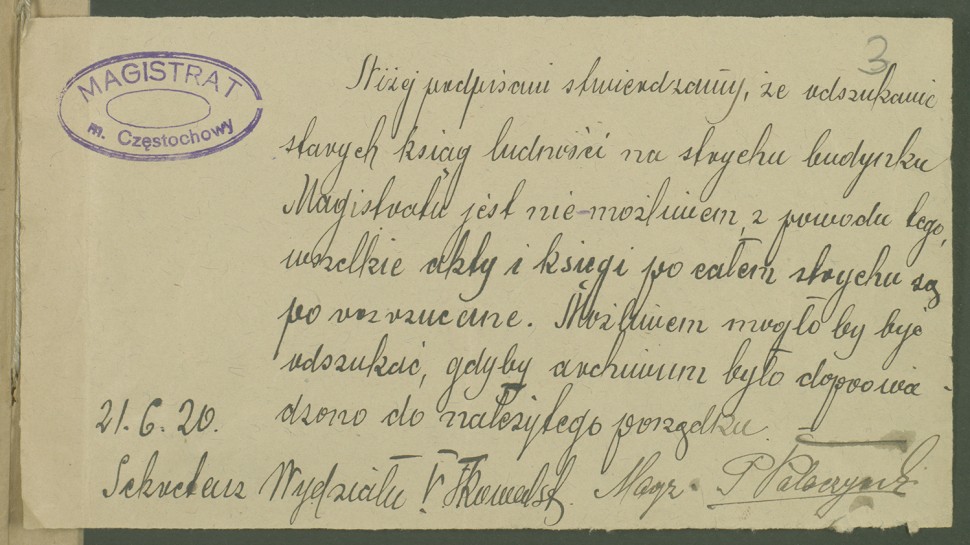 3
MAGISTRAT
m. Częstochowy
Niżej podpisani stwierdzamy, że odszukanie
starych ksiąg ludności na strychu budynku
Magistratu jest nie-możliwem, z powodu tego,
wszelkie akty i księgi po całem strychu są
po rozrzucane. Możliwem mogło by być
odszukać, gdyby archiwum było doprowa-
dzono do należytego porządku.
21.6.20.
Sekretarz Wydziału V. Kowalski Magr.